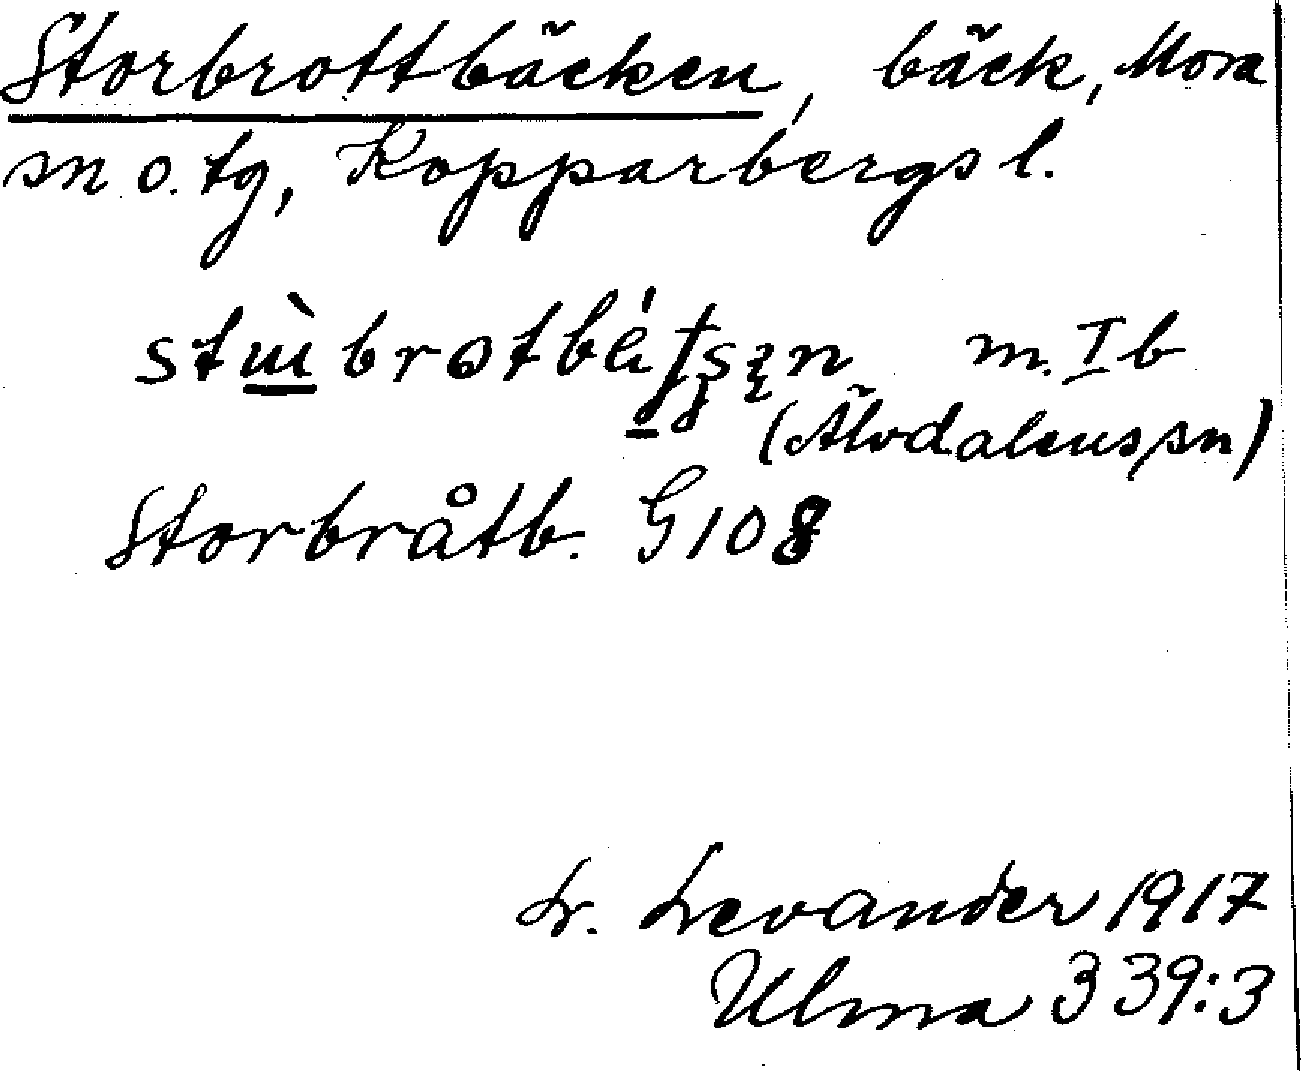 Storbrottbäcken, bäck, Mora
sn o. tg, Kopparbergs l.
m. I b
(Älvdalens sn)
Storbråtb. G108
L. Levander 1917
Ulma 339:3